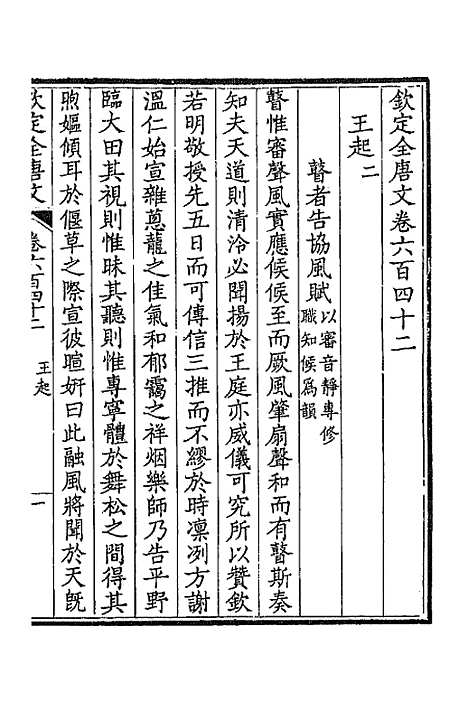 欽定全唐文卷六百四十二
王起二
瞽者告協風賦以審音靜專修
職知候爲韻
瞽惟審聲風實應候候至而厥風肇扇聲和而有瞽斯奏
知夫天道則清泠必聞揚於王庭亦威儀可究所以贊欽
若明敬授先五日而可傳信三推而不繆於時凛冽方謝
溫仁始宣雜蔥蘢之佳氣和郁靄之祥烟樂師乃告平野
臨大田其視則惟昧其聽則惟專寧體於舞松之間得其
煦嫗傾耳於偃草之際宣彼暄妍曰此融風將聞於天旣
欽定全唐文
卷六百四十二
王起
一